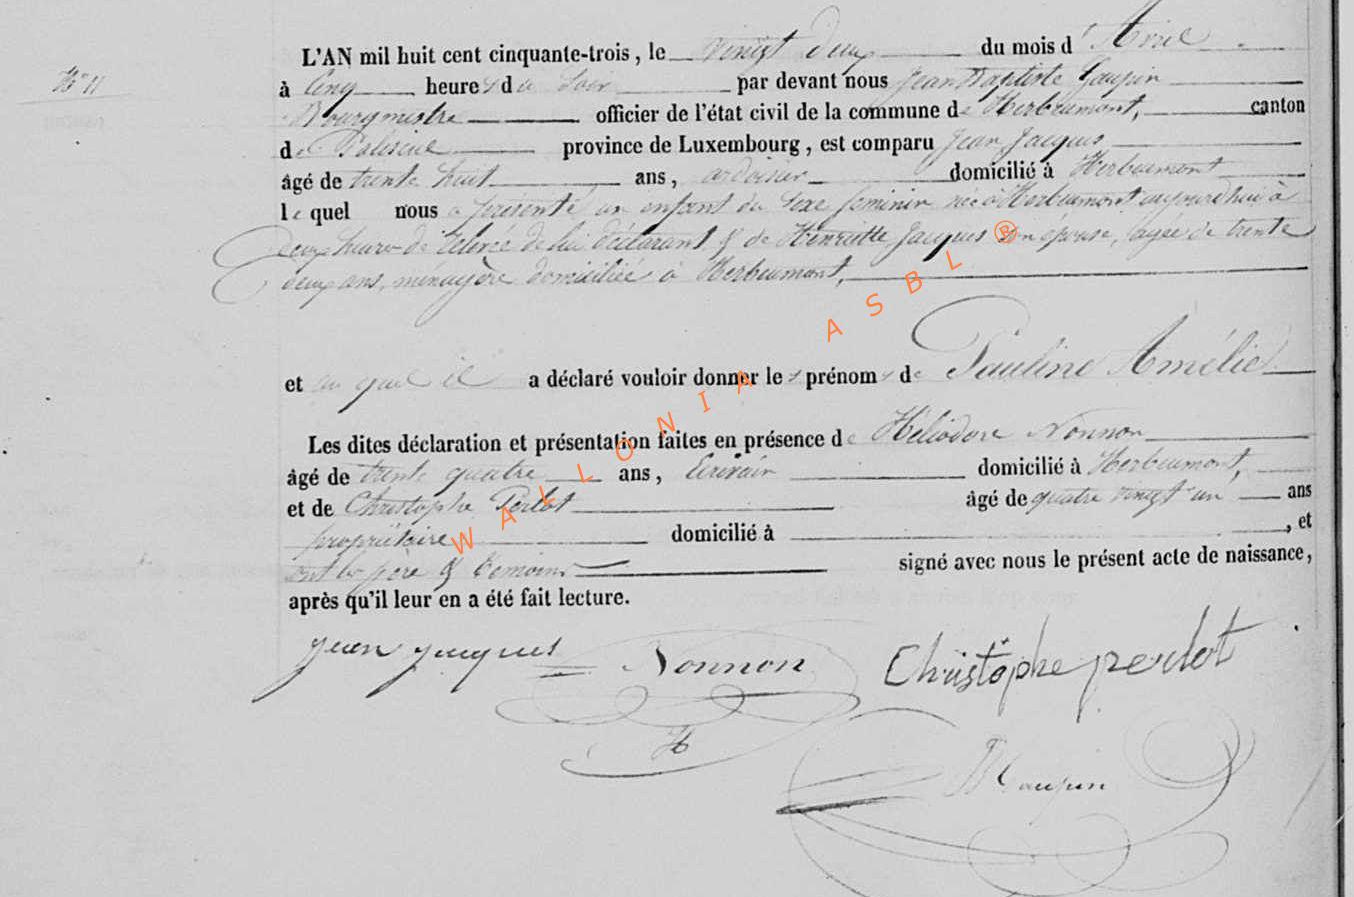 N° 11
L'AN mil huit cent cinquante-trois, le vingt deux du mois d'Avril
à Cinq heures du Soir par devant nous Jean Baptiste Gaupin
Bourgmestre officier de l'état civil de la commune de Herbeumont, canton
de Paliseul province de Luxembourg, est comparu Jean Jacques
âgé de trente huit ans, ardoisier domicilié à Herbeumont
lequel nous a présenté un enfant du sexe féminin née à Herbeumont aujourd'hui à
deux heures de de lui déclarant & de Henriette Jacques son épouse, âgée de trente
deux ans, menagère domiciliée à Herbeumont,
et au quel il a déclaré vouloir donner les prénoms de Pauline Amélie
Les dites déclaration et présentation faites en présence de Héliodore Nonnon
âgé de trente quatre ans, Ecrivain domicilié à Herbeumont,
et de Christophe Perlot âgé de quatre vingt un ans
propriétaire domicilié à , et
ont les père & témoins signé avec nous le présent acte de naissance,
après qu'il leur en a été fait lecture.
Jean Jacques Nonnon Christophe perlot
H
WALLONIA ASBL ®